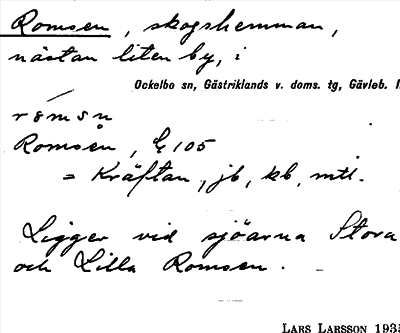 Romsen, skogshemman,
nästan liten by, i
Ockelbo sn, Gästriklands v. doms. tg, Gävleb.
Romsen, 105
= Kräftan, jb, kb, mtl.
Ligger vid sjöarna Stora
och Lilla Romsen.
LARS LARSSON 193